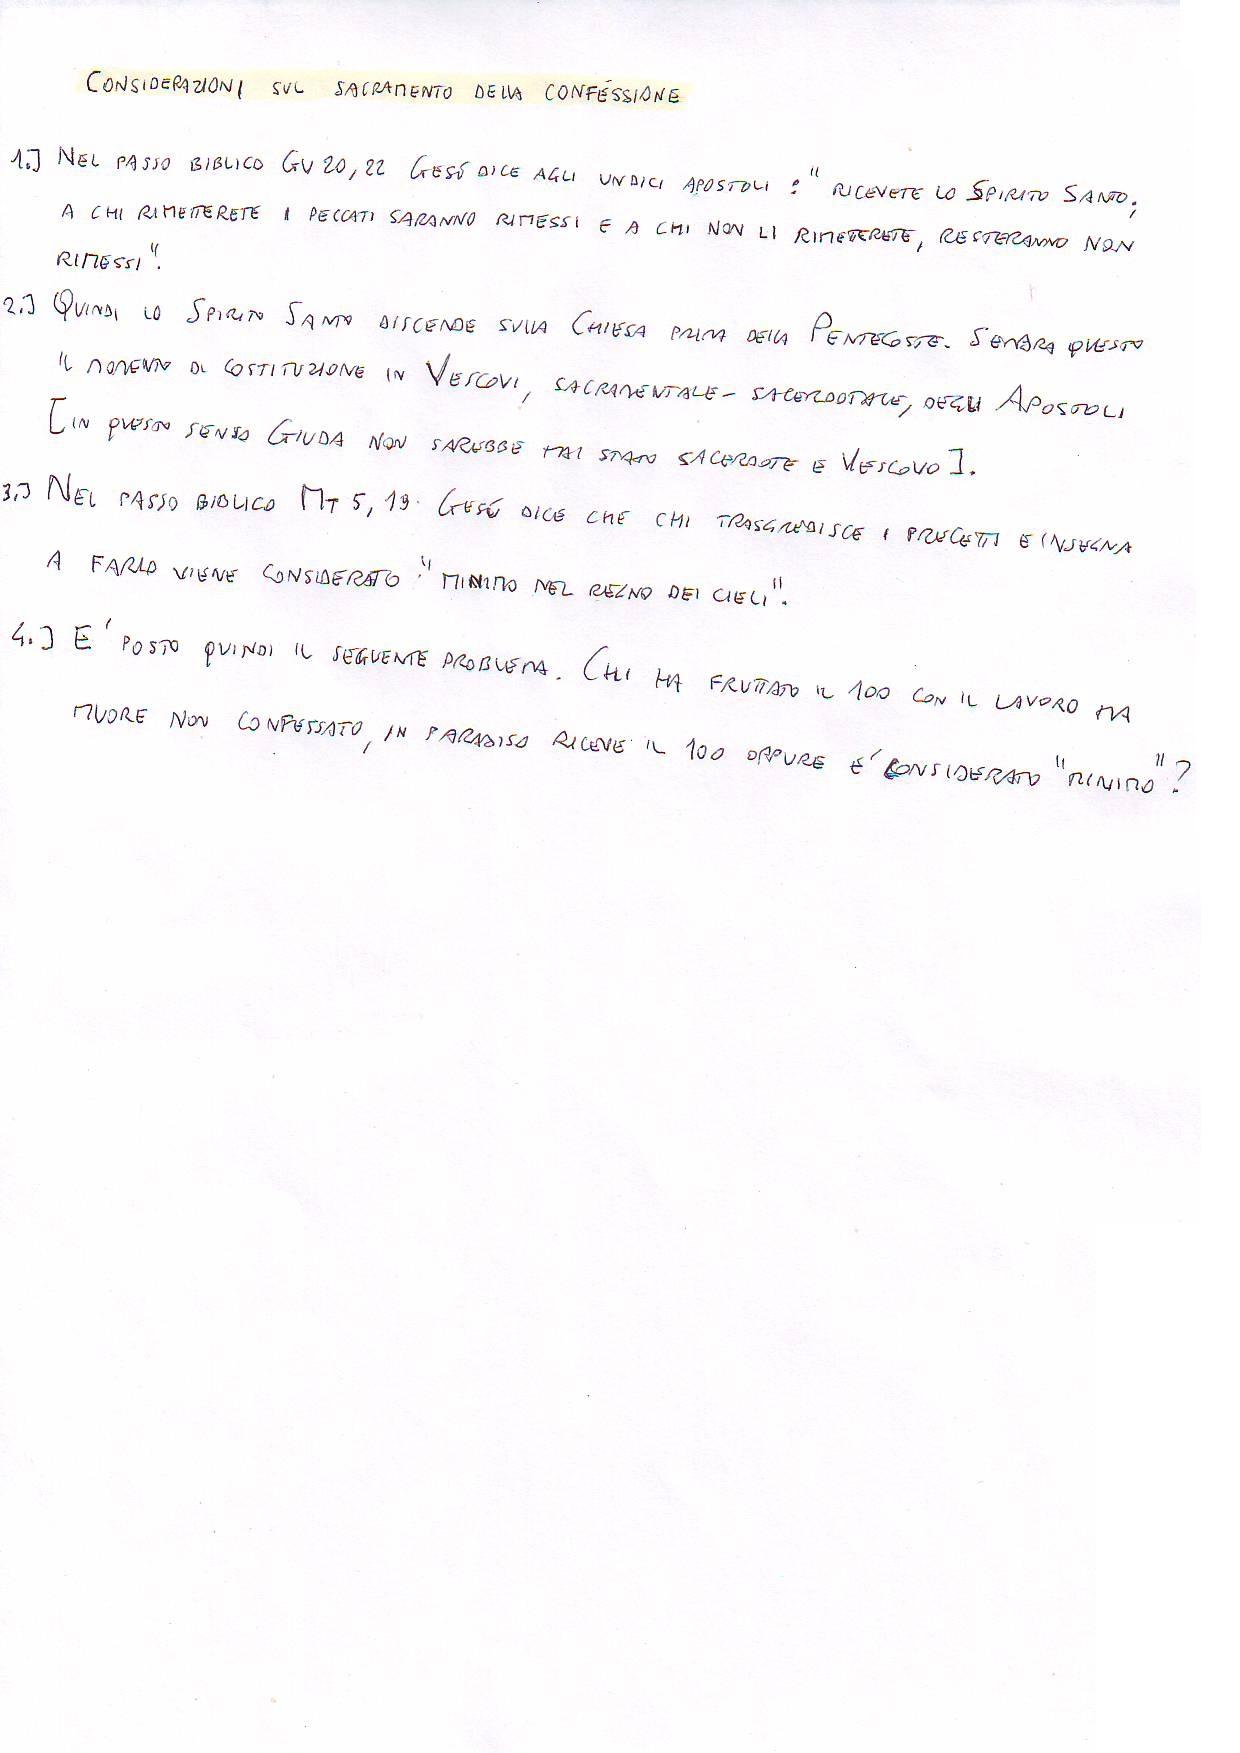 CONSIDERAZIONI SUL SACRAMENTO DELLA CONFESSIONE
1.] NEL PASSO BIBLICO GV 20,22 GESÚ DICE AGLI UNDICI APOSTOLI : "RICEVETE LO SPIRITO SANTO;
A CHI RIMETTERETE I PECCATI SARANNO RIMESSI E A CHI NON LI RIMETTERETE, RESTERANNO NON
RIMESSI".
2.] QUINDI LO SPIRITO SANTO DISCENDE SULLA CHIESA PRIMA DELLA PENTECOSTE. SEMBRA QUESTO
IL MOMENTO DI COSTITUZIONE IN VESCOVI, SACRAMENTALE-SACERDOTALE, DEGLI APOSTOLI
[IN QUESTO SENSO GIUDA NON SAREBBE MAI STATO SACERDOTE E VESCOVO].
3.] NEL PASSO BIBLICO MT 5,19 GESÚ DICE CHE CHI TRASGREDISCE I PRECETTI E INSEGNA
A FARLO VIENE CONSIDERATO : "MINIMO NEL REGNO DEI CIELI".
4.] E' POSTO QUINDI IL SEGUENTE PROBLEMA. CHI HA FRUTTATO IL 100 CON IL LAVORO MA
MUORE NON CONFESSATO, IN PARADISO RICEVE IL 100 OPPURE E' CONSIDERATO "MINIMO"?